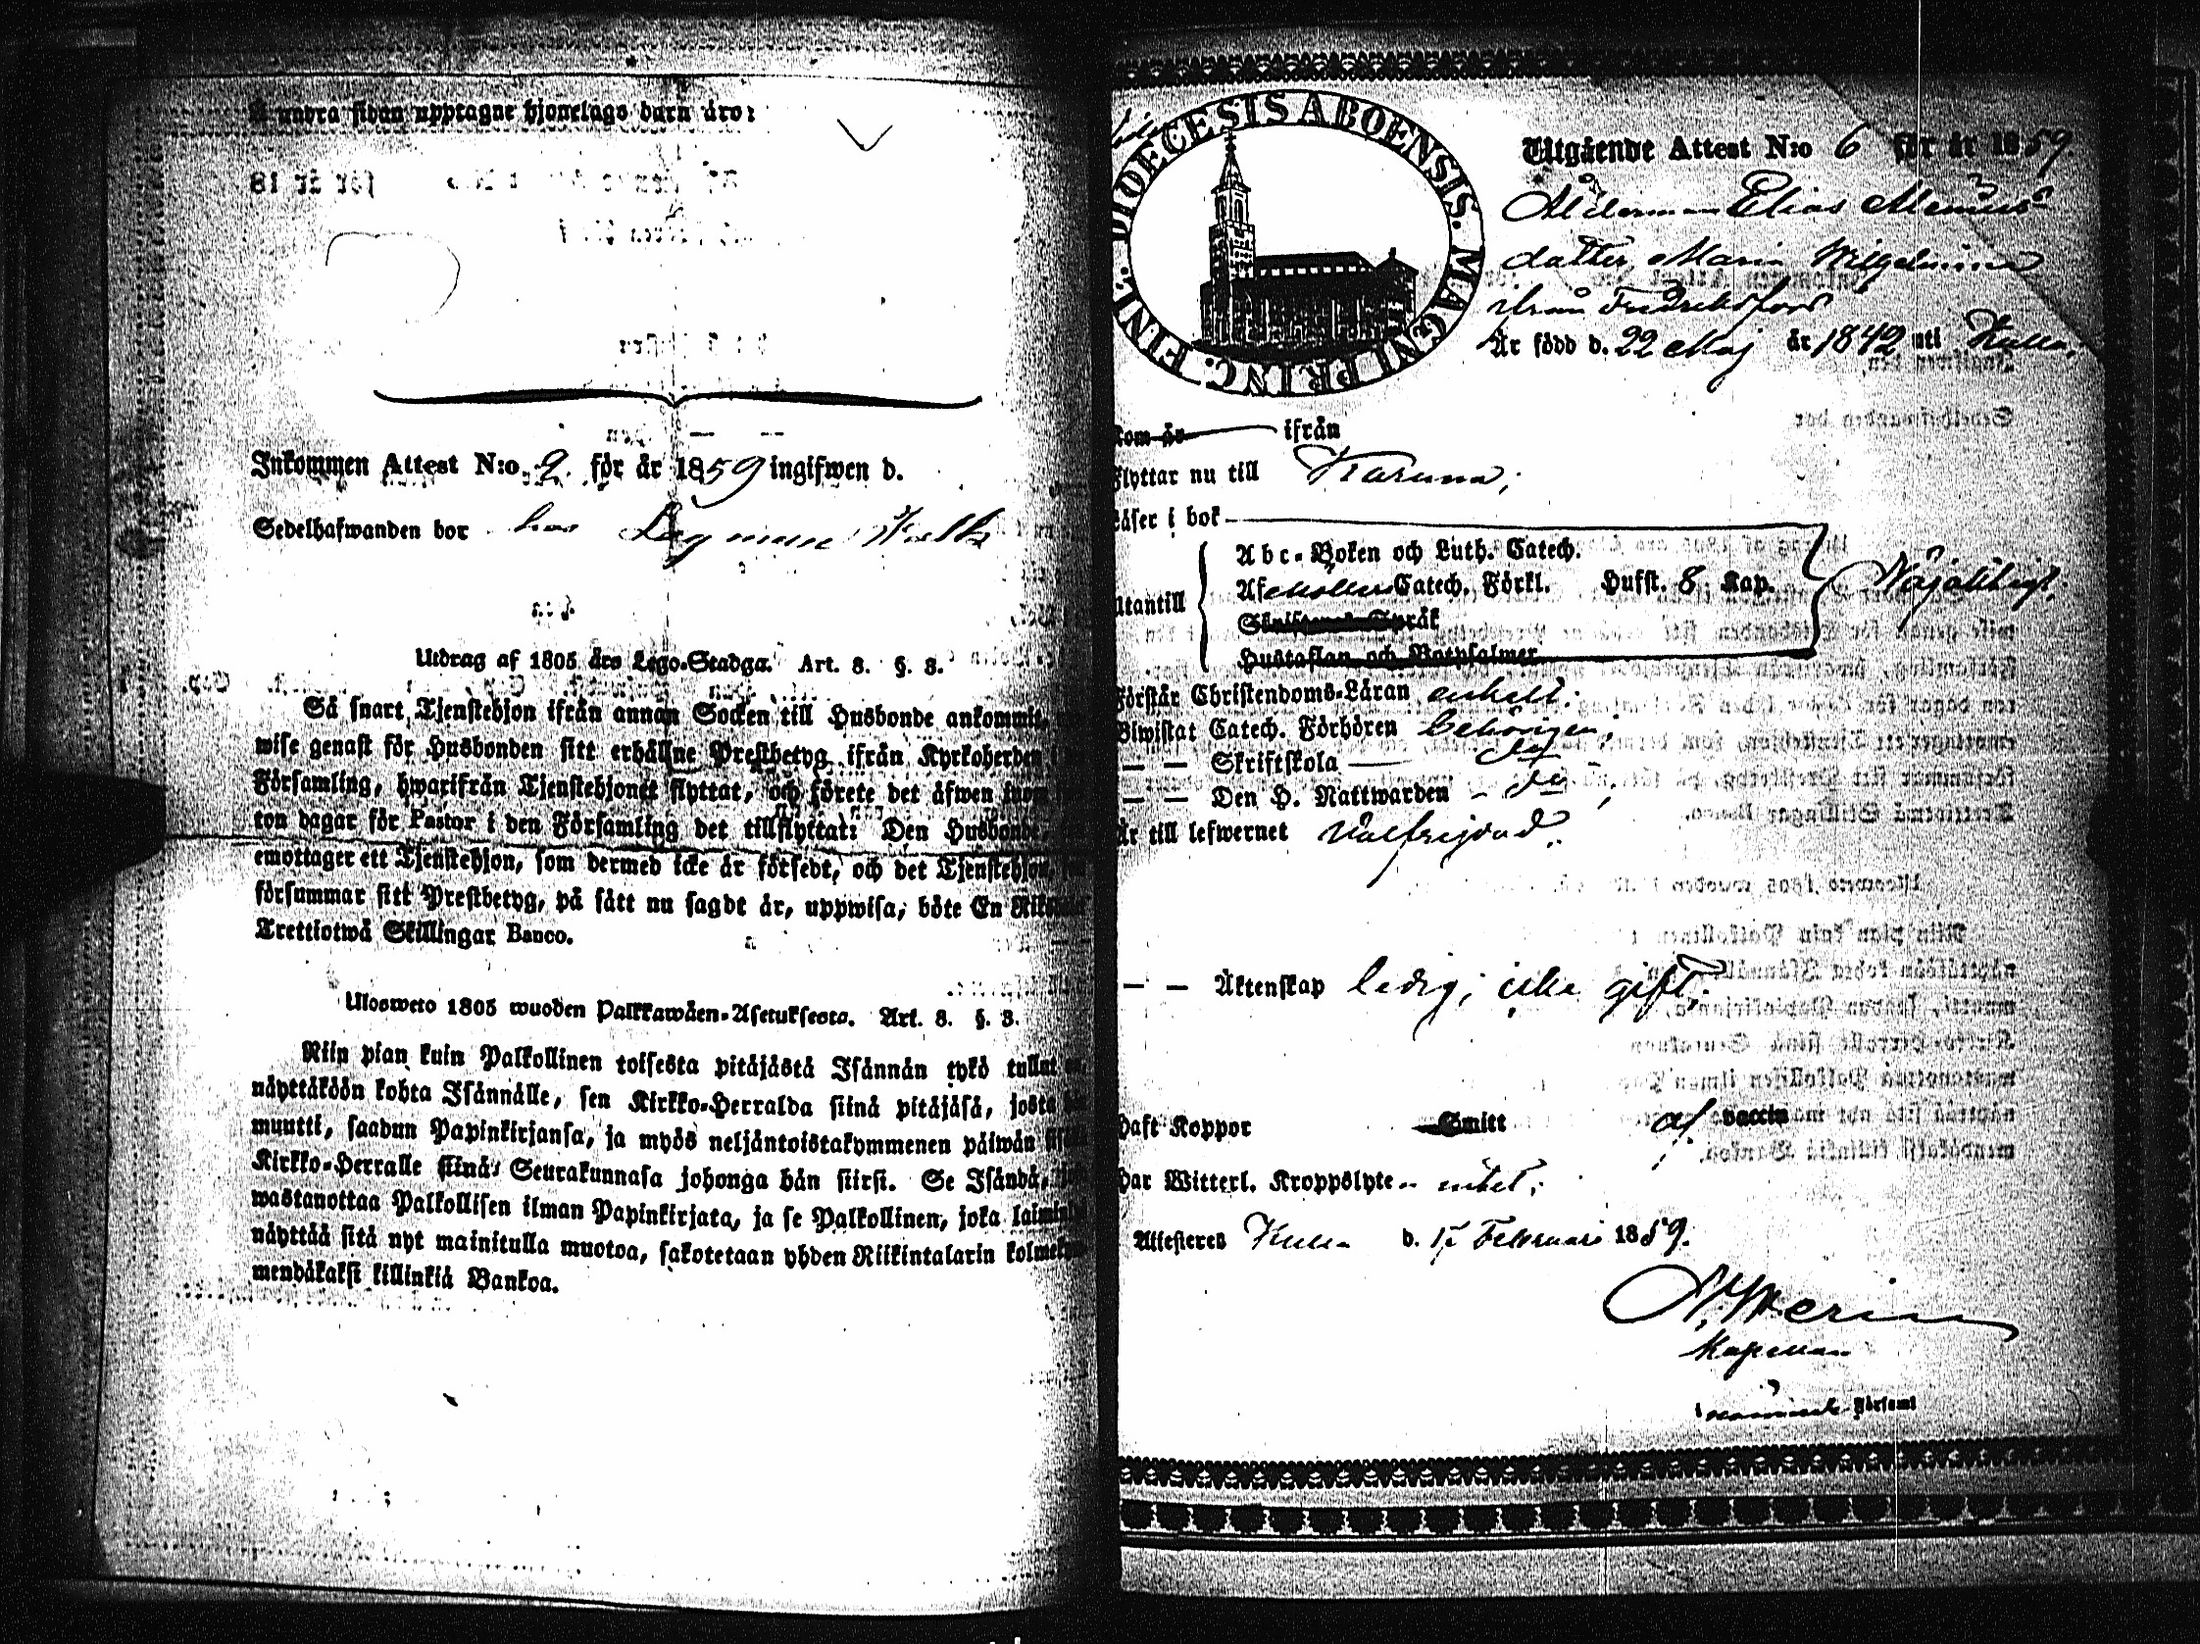 undra sidan upptagne hjonelags barn äro:
Inkommen Attest N:o 9 för år 1859 ingifwen d.
Sedelhafwanden bor hos
Utdrag af 1805 års Lego-Stadga. Art. 8. §. 3.
Så snart Tjenstehjon ifrån annan Socken till Husbonde ankommit
wise genast för Husbonden sitt erhållne Prestbetyg ifrån Kyrkoherden
Församling, hwarifrån Tjenstehjonet flyttat, och förete det äfwen inom
ton dagar för Pastor i den Församling det tillflyttat: Den Husbonde,
emottager ett Tjenstehjon, som dermed icke är försedt, och det Tjenstehjon,
försummar sitt Prestbetyg, på sätt nu sagdt är, uppwisa, böte En
Trettiotwå Skillingar Banco.
Ulosweto 1805 wuoden Palkkawäen-Asetuksesta. Art. 8. §. 3.
Niin pian kuin Palkollinen toisesta pitäjästä Isännän tykö tullut
näyttäköön kohta Isännälle, sen Kirkko-Herralda siinä pitäjäsä, josta
muutti, saadun Papinkirjansa, ja myös neljäntoistakymmenen päiwän
Kirkko-Herralle siinä Seurakunnasa johonga hän siirsi. Se Isändä,
wastanottaa Palkollisen ilman Papinkirjata, ja se Palkollinen, joka
näyttää sitä nyt mainitulla muotoa, sakotetaan yhden Riikintalarin
mendäkaksi killinkiä Bankoa.
FINL. DIOECESIS ABOENSIS. MAGNI PRINC.
Utgående Attest N:o 6 för år 1859
Ålderman Elias
datter Maria Wilhelmina
ifrån Fredriksfors
Är född d. 22 Maj år 1842 uti
kom är ifrån
Flyttar nu till Karuna;
Läser i bok
Abc-Boken och Luth. Catech.
Utantill Catech. Förkl. Hufst. 8 Kap. Nöjaktigt.
Språk
Hustaflan och Botpsalmer
Förstår Christendoms-Läran enkelt.
Biwistat Catech. Förhören behörigen;
— — Skriftskola — do
— — Den H. Nattwarden - do ;
Är till lefwernet wälfrejdad.
— — Äktenskap ledig; icke gift.
Haft Koppor Smitt af vaccin
Har Witterl. Kroppslyte intet;
Attesteres d. 17 Februari 1859.
Kapellan
Församl